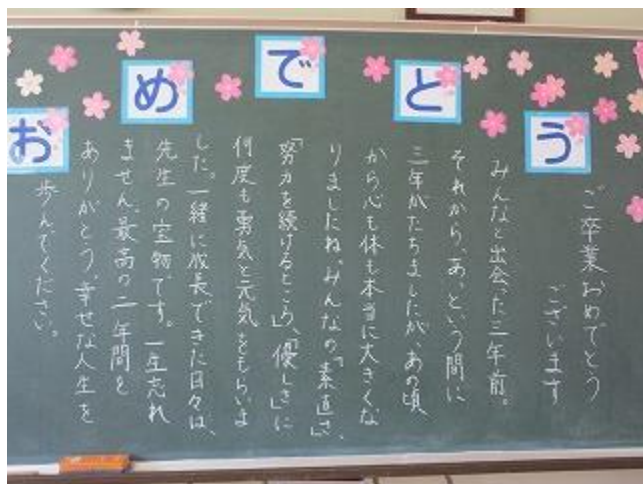 おめでとう
ご卒業おめでとう
ございます
みんなと出会った二年前。
それから、あっという間に
二年がたちましたが、あの頃
から心も体も本当に大きくな
りましたね。みんなの「素直さ」、
「努力を続けるところ」、「優しさ」に
何度も勇気と元気をもらいま
した。一緒に成長できた日々は、
先生の宝物です。一生忘れ
ません。最高の二年間を
ありがとう。幸せな人生を
歩んでください。